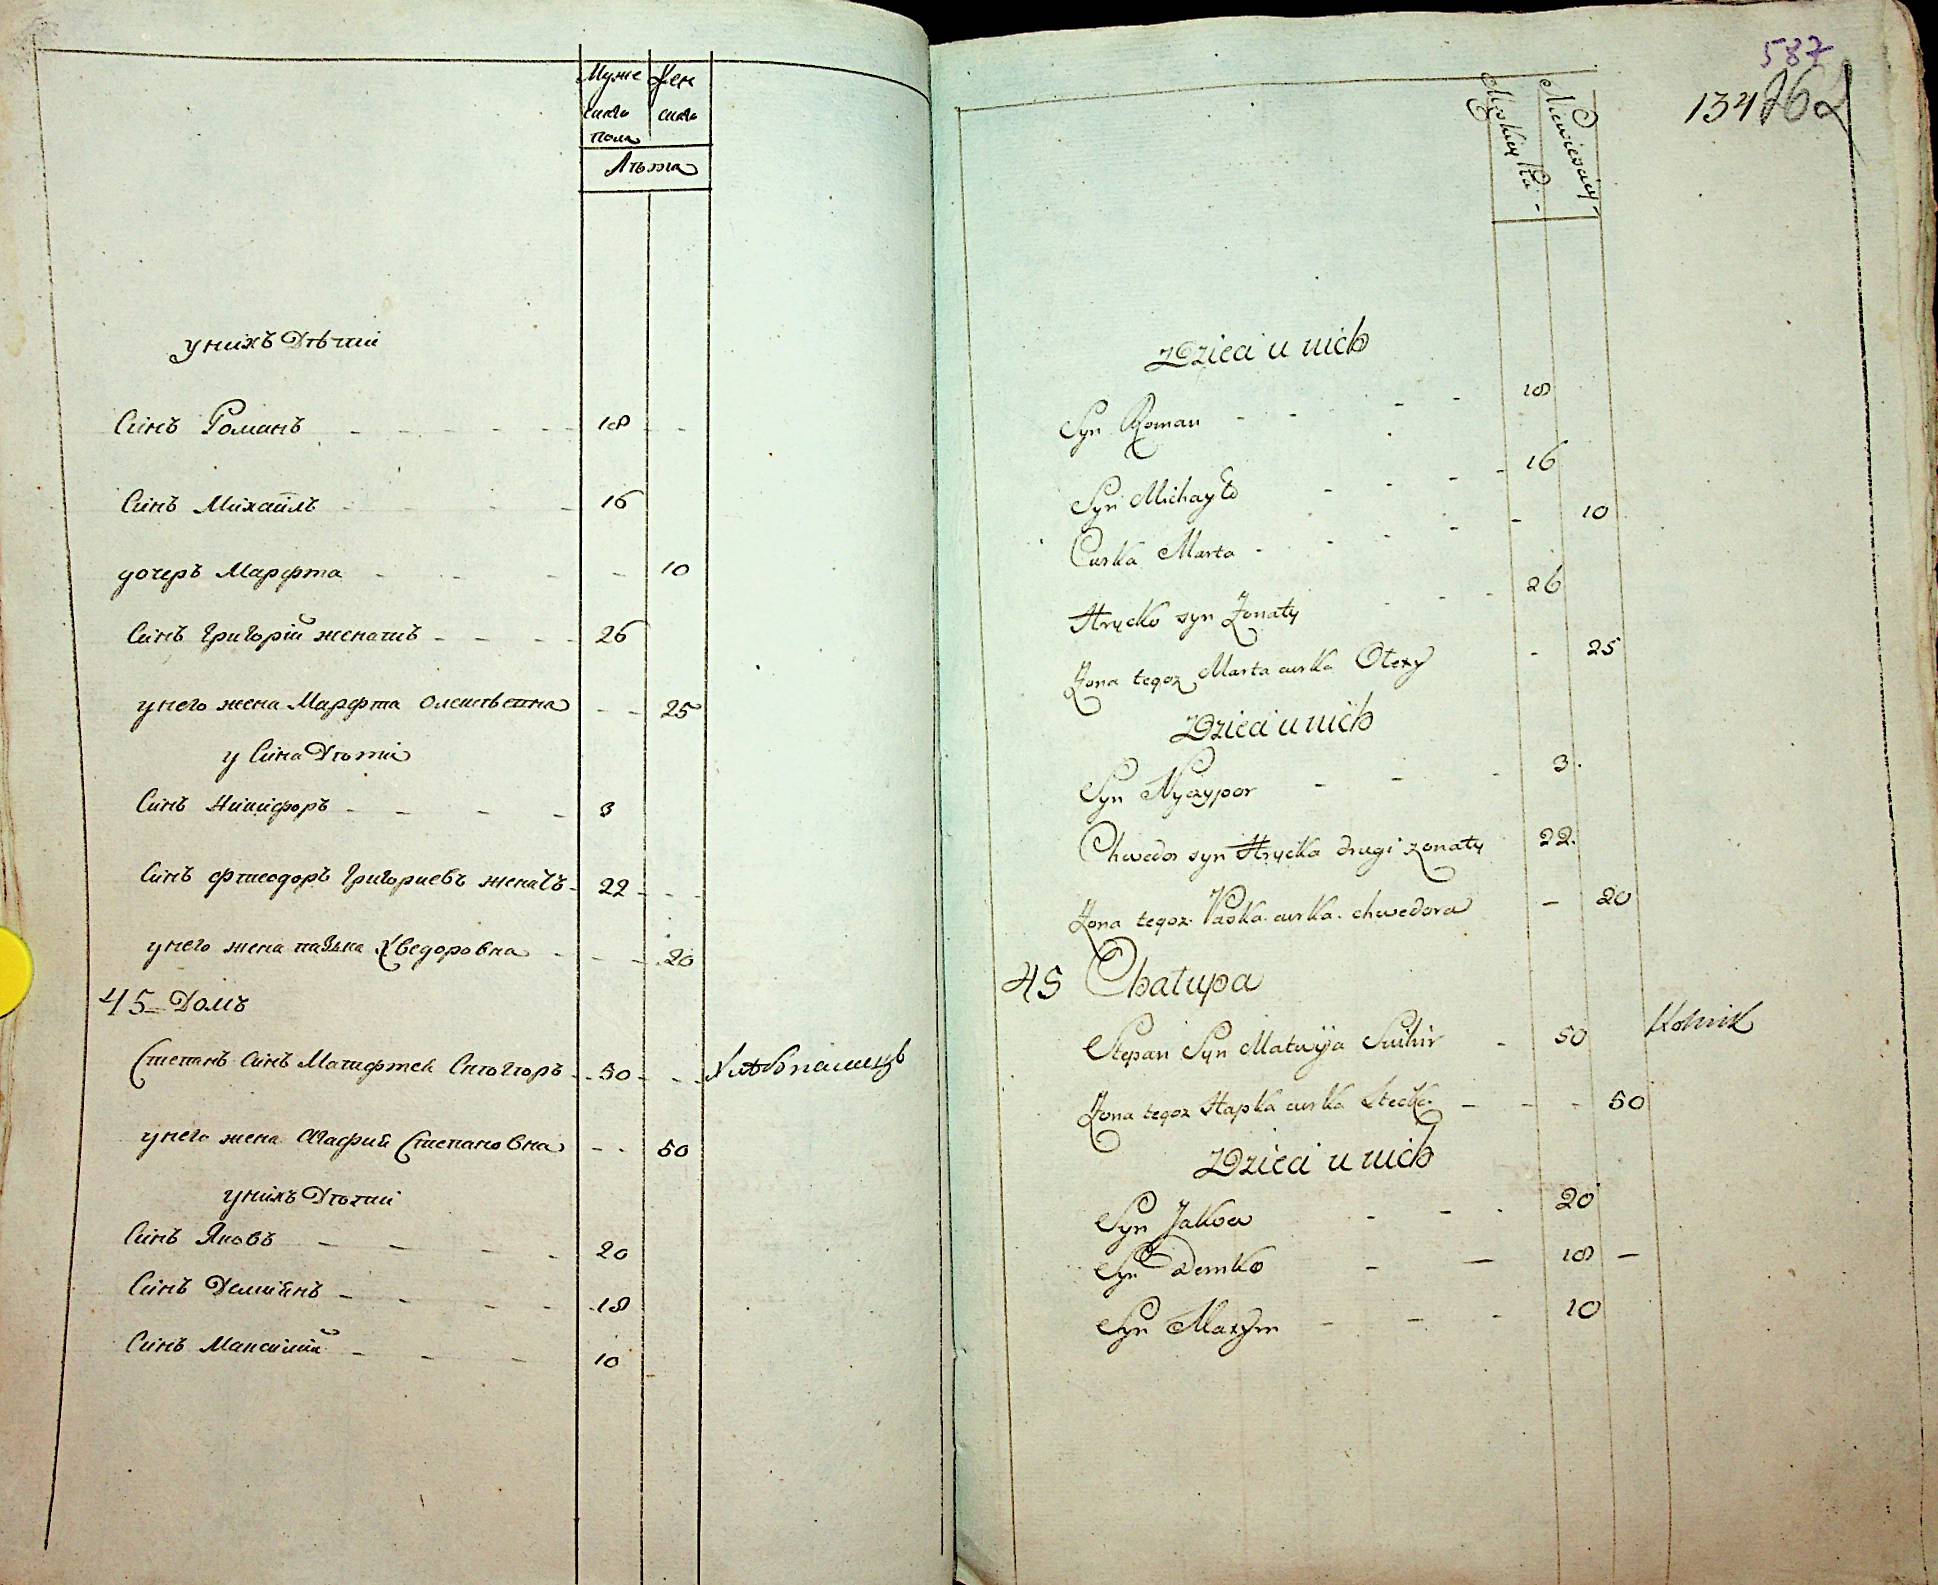 Муже
скаго
пола
Жен
скаго
Лѣта
у нихъ Дѣтіи
Синъ Романъ - - - - - 18 - -
Синъ Михаилъ - - - - 16
дочерь Марфта - - - - - 10
Синъ Григорій женатъ - - - - 26
у него жена Марфта Олексѣевна - - 25
у Сина Дѣтіи
Синъ Никифоръ - - - - 3
Синъ фтеодоръ Григориевъ женатъ - 22 - - -
у него жена Пазька Хведоровна - - - 20
45 Домъ
Степанъ Синъ Матифтея Снѣгиръ - - 50 - - - Хлѣбпашецъ
у него жена Агафия Степановна - - 50
у нихъ Дѣтіи
Синъ Яковъ - - - - 20
Синъ Демиянъ - - - - 18
Синъ Максимій - - - 10
587
134 262
Męskiey Płci -
Niewieściey -
Dzieci u nich
Syn Roman - - - - 18
Syn Michayło - - - - 16
Curka Marta - - - - - - 10
Hrycko syn Żonaty - - - 26
Żona tegoz Marta curka Olexy - 25
Dzieci u nich
Syn Nyczypor - - - 3.
Chwedor syn Hrycka drugi zonaty 22.
Żona tegoz. Paska. curka. chwedora - 20
45 Chałupa
Stepan Syn Matwija Snihir - 50 Rolnik
Żona tegoz Hapka curka Stecka - - - 50
Dzieci u nich
Syn Jakow - - - 20
Syn Demko - - 18 -
Syn Maxym - - - 10